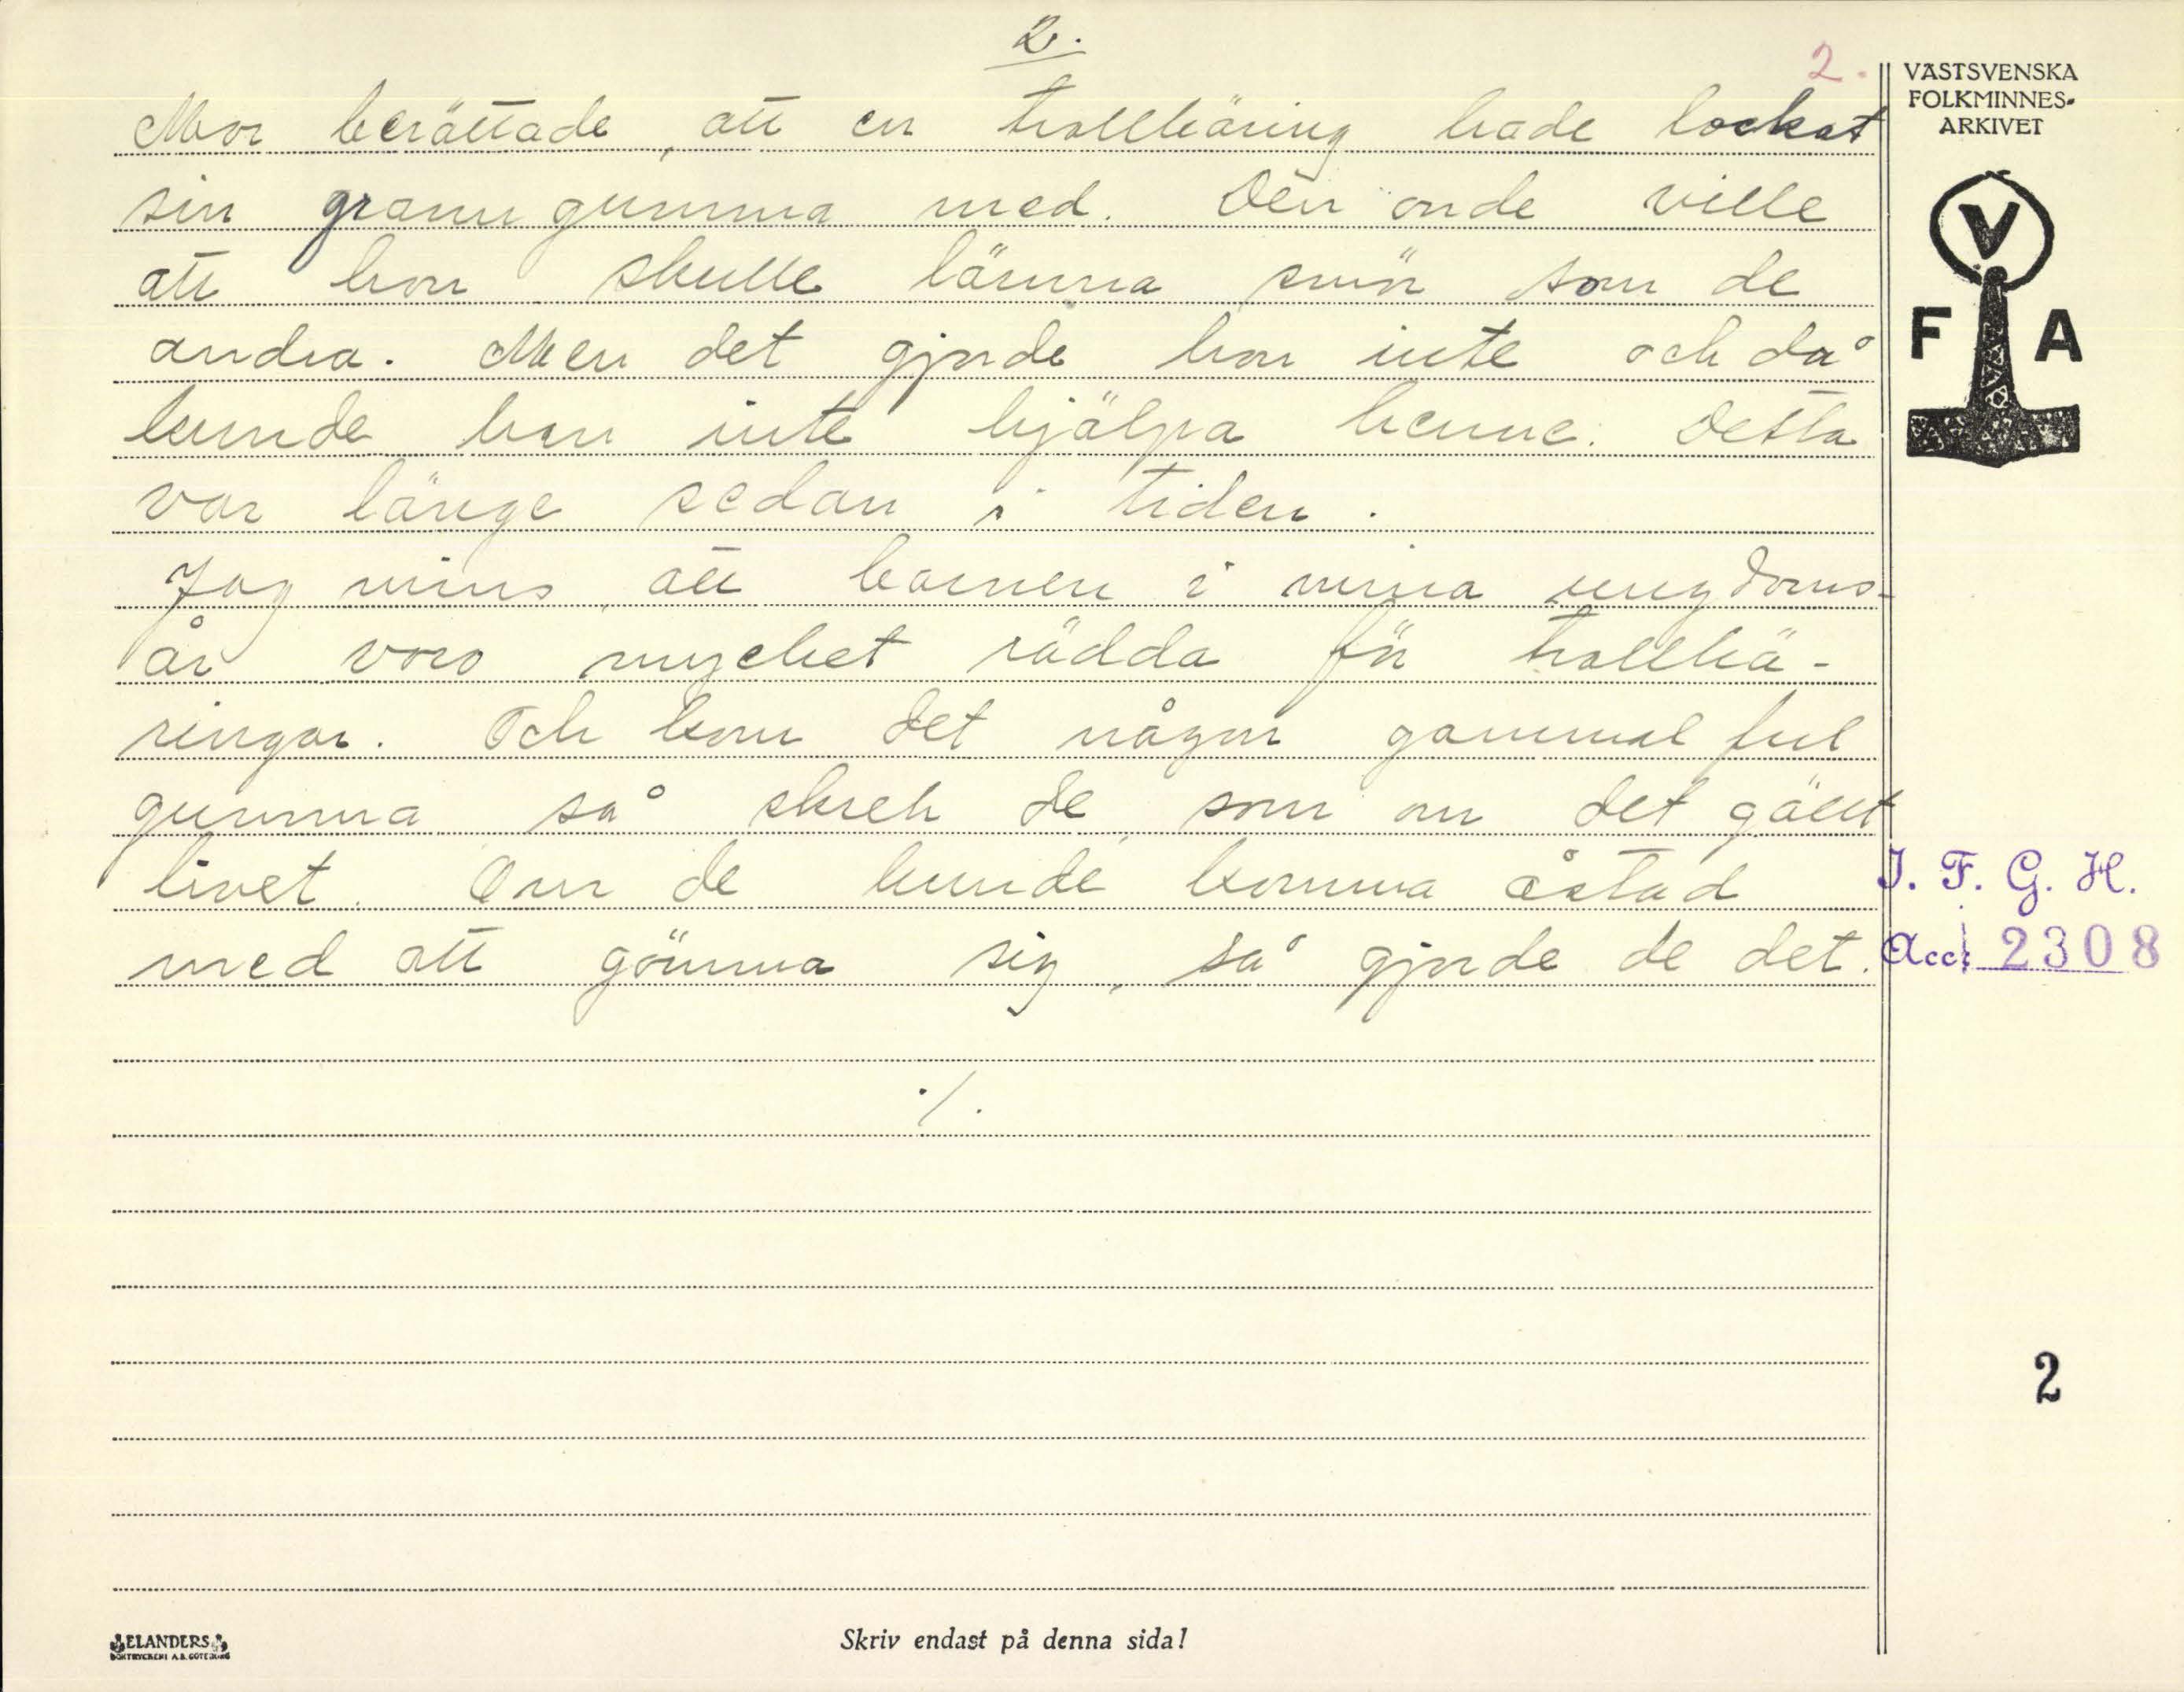 2.
2.
Mor berättade, att en trollkäring hade lockat
sin granngumma med. Den onde ville
att hon skulle lämna smör som de
andra. Men det gjorde hon inte och då
kunde han inte hjälpa henne. Detta
var länge sedan i tiden.
Jag mins, att barnen i mina ungdoms-
år voro mycket rädda för trollkä-
ringar. Och kom det någon gammal ful
gumma så skrek de, som om det gällt
livet. Om de kunde komma åstad
med att gömma sig, så gjorde de det.
./.
VÄSTSVENSKA
FOLKMINNES-
ARKIVET
V
F A
I. F. G. H.
Acc. 2308
2
ELANDERS
BOKTRYCKERI A.B. GÖTEBORG
Skriv endast på denna sida!